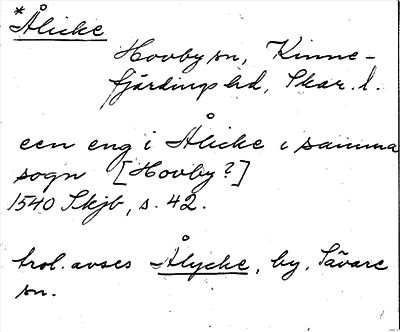 *Ålicke
Hovby sn, Kinne-
fjärdings hd, Skar. l.
een eng i Ålicke i samma
sogn [Hovby?]
1540 Skjb, s. 42.
trol. avses Ålycke, by, Sävare
sn.